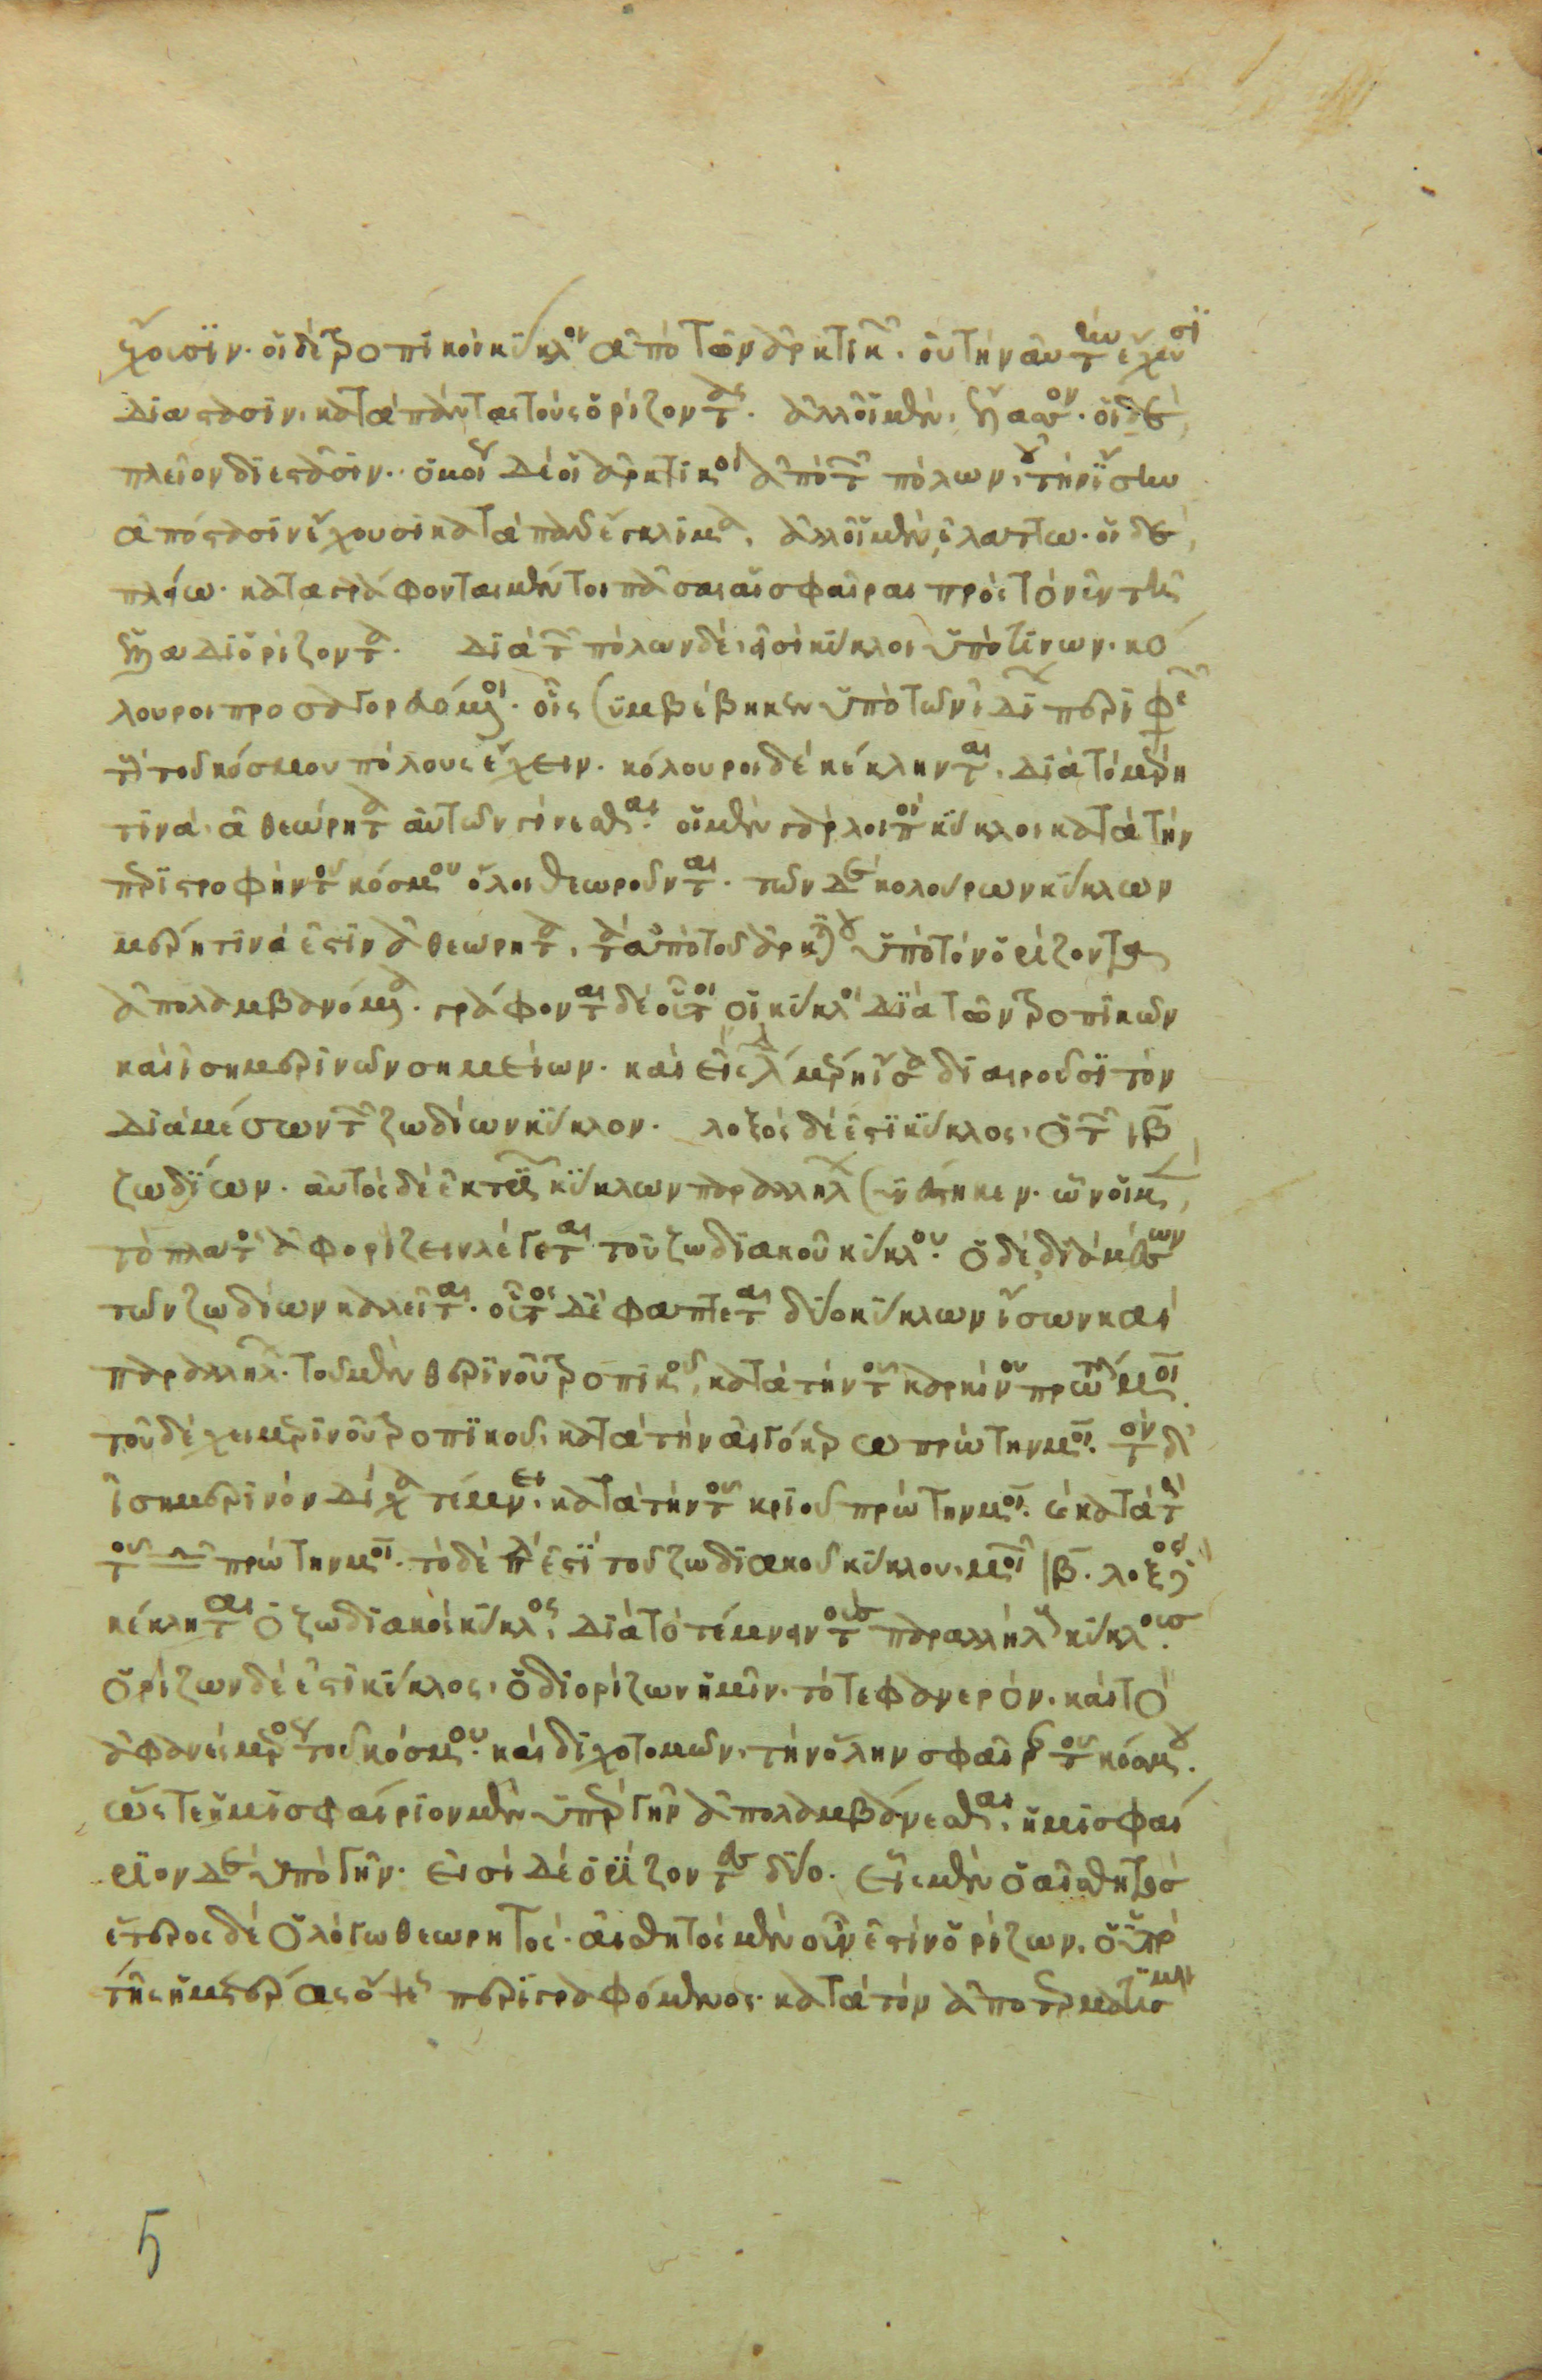 ἔχουσιν. οἱ δὲ τροπικοὶ κύκλοι ἀπὸ τῶν ἀρκτικῶν. οὐ τὴν αὐτὴν ἔχουσι
διάστασιν. κατὰ πάντας τοὺς ὁρίζοντας. ἀλλ' οἱ μὲν, ἔλαττον. οἱ δὲ,
πλεῖον διεστᾶσιν. ὁμοίως δὲ οἱ ἀρκτικοὶ ἀπὸ τῶν πόλων, οὐ τὴν ἴσην
ἀπόστασιν ἔχουσι κατὰ πᾶν ἔγκλιμα. ἀλλ' οἱ μὲν, ἐλάττω. οἱ δὲ,
πλείω. καταγράφονται μέντοι πᾶσαι αἱ σφαῖραι πρὸς τὸν ἐν τῇ
Ἑλλάδι ὁρίζοντα. διὰ τῶν πόλων δέ, εἰσὶ κύκλοι ὑπό τινων. κό
λουροι προσαγορευόμενοι. οἷς συμβέβηκεν ἐπὶ τῶν ἰδίων περιφερειῶν
τοὺς τοῦ κόσμου πόλους ἔχειν. κόλουροι δὲ κέκληνται. διὰ τὸ μέρη
τινὰ. ἀθεώρητα αὐτῶν γίνεσθαι. οἱ μὲν γὰρ λοιποὶ κύκλοι κατὰ τὴν
περιστροφὴν τοῦ κόσμου ὅλοι θεωροῦνται. τῶν δὲ κολούρων κύκλων
μέρη τινά ἐστιν ἀθεώρητα. τὰ ὑπὸ τοῦ ἀρκτικοῦ ὑπὸ τὸν ὁρίζοντα
ἀπολαμβανόμενα. γράφονται δὲ οὗτοι οἱ κύκλοι διὰ τῶν τροπικῶν
καὶ ἰσημερινῶν σημείων. καὶ εἰς δ μέρη ἴσα διαιροῦσι τὸν
διὰ μέσων τῶν ζωδίων κύκλον. λοξὸς δέ ἐστι κύκλος. ὁ τῶν ιβ
ζωδίων. αὐτὸς δὲ ἐκ τριῶν κύκλων παραλλήλων συνέστηκεν. ὧν οἱ μὲν,
τὸ πλάτος ἀφορίζειν λέγεται τοῦ ζωδιακοῦ κύκλου. ὁ δὲ διὰ μέσων
τῶν ζωδίων καλεῖται. οὗτος δὲ ἐφάπτεται δύο κύκλων ἴσων καὶ
παραλλήλων. τοῦ μὲν θερινοῦ τροπικοῦ, κατὰ τὴν τοῦ καρκίνου πρώτην μοῖραν.
τοῦ δὲ χειμερινοῦ τροπικοῦ. κατὰ τὴν αἰγόκερω πρώτην μοῖραν. τὸν δὲ
ἰσημερινὸν δίχα τέμνει. κατὰ τὴν τοῦ κριοῦ πρώτην μοῖραν. καὶ κατὰ τὴν
τοῦ ♎ πρώτην μοῖραν. τὸ δὲ πλάτος ἐστὶ τοῦ ζωδιακοῦ κύκλου. μοιρῶν ιβ. λοξὸς
κέκληται ὁ ζωδιακὸς κύκλος, διὰ τὸ τέμνειν τοὺς παραλλήλους κύκλους.
ὁρίζων δέ ἐστι κύκλος. ὁ διορίζων ἡμῖν. τό τε φανερόν. καὶ τὸ
ἀφανὲς μέρος τοῦ κόσμου. καὶ διχοτομῶν. τὴν ὅλην σφαῖραν τοῦ κόσμου.
ὥστε ἡμισφαίριον μὲν ὑπὲρ γῆν ἀπολαμβάνεσθαι. ἡμισφαί
ριον δὲ ὑπὸ γῆν. εἰσὶ δὲ ὁρίζοντες δύο. εἷς μὲν ὁ αἰσθητός
ἕτερος δὲ ὁ λόγῳ θεωρητός. αἰσθητὸς μὲν οὖν ἐστὶν ὁρίζων. ὁ ὑπὸ
τῆς ἡμετέρας ὄψεως περιγραφόμενος. κατὰ τὸν ἀποτερματισμὸν